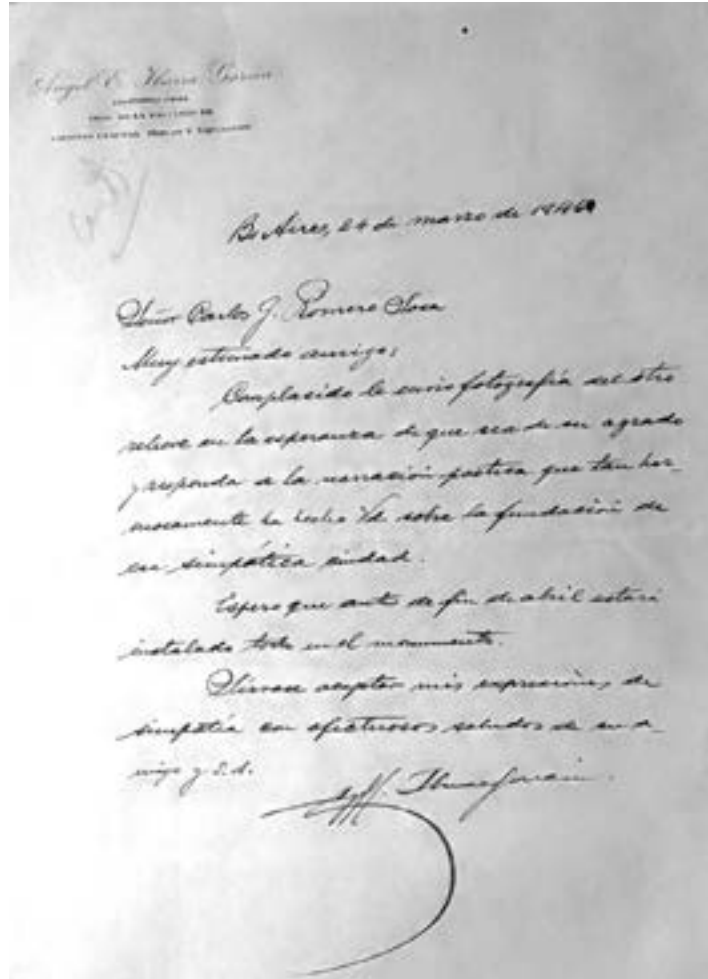 Angel E. Ibarra García
Bs Aires, 24 de marzo de 194
Señor Carlos G. Romero Sosa
Muy estimado amigo:
Complacido le envío fotografía del otro
relieve en la esperanza de que sea de su agrado
y responda a la narración poética que tan her-
mosamente ha hecho Vd. sobre la fundación de
esa simpática ciudad.
Espero que ante de fin de abril estará
instalado todo en el monumento.
Sírvase aceptar mis expresiones de
simpatía con afectuosos saludos de su a-
migo y S.S.
Ibarra García